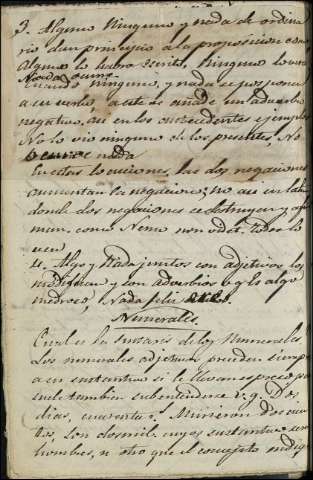 3. Alguno Ninguno y nada de ordina
rio dan principio a la proposicion como
Alguno lo habra escrito. Ninguno lo vera
Nada ocurre
Cuando ninguno, y nada se posponen
a su verbo, a este se añade un adverbio
negativo, asi en los antecedentes ejemplos
No lo vio ninguno de los presentes, No
ocurre nada
En estas locuciones, las dos negaciones
aumentan la negacion; no asi en latin
donde dos negaciones se destruyen y afir
man, como Nemo non videt, todos lo
ven
4. Algo y Nada juntos con adjetivos los
modifican y son adverbios v.g. Es algo
medroso, Nada feliz
Numerales.
Cual es la sintaxis de los Numerales
Los numerales adjetivos preceden siempre
a su sustantivo si le llevan espreso pe
suele tambien subentenderse v.g. Dos
dias, cuarenta Murieron doscien
tos, son dos mil cuyos sustantivos seran
hombres, u otro que el concepto indiq